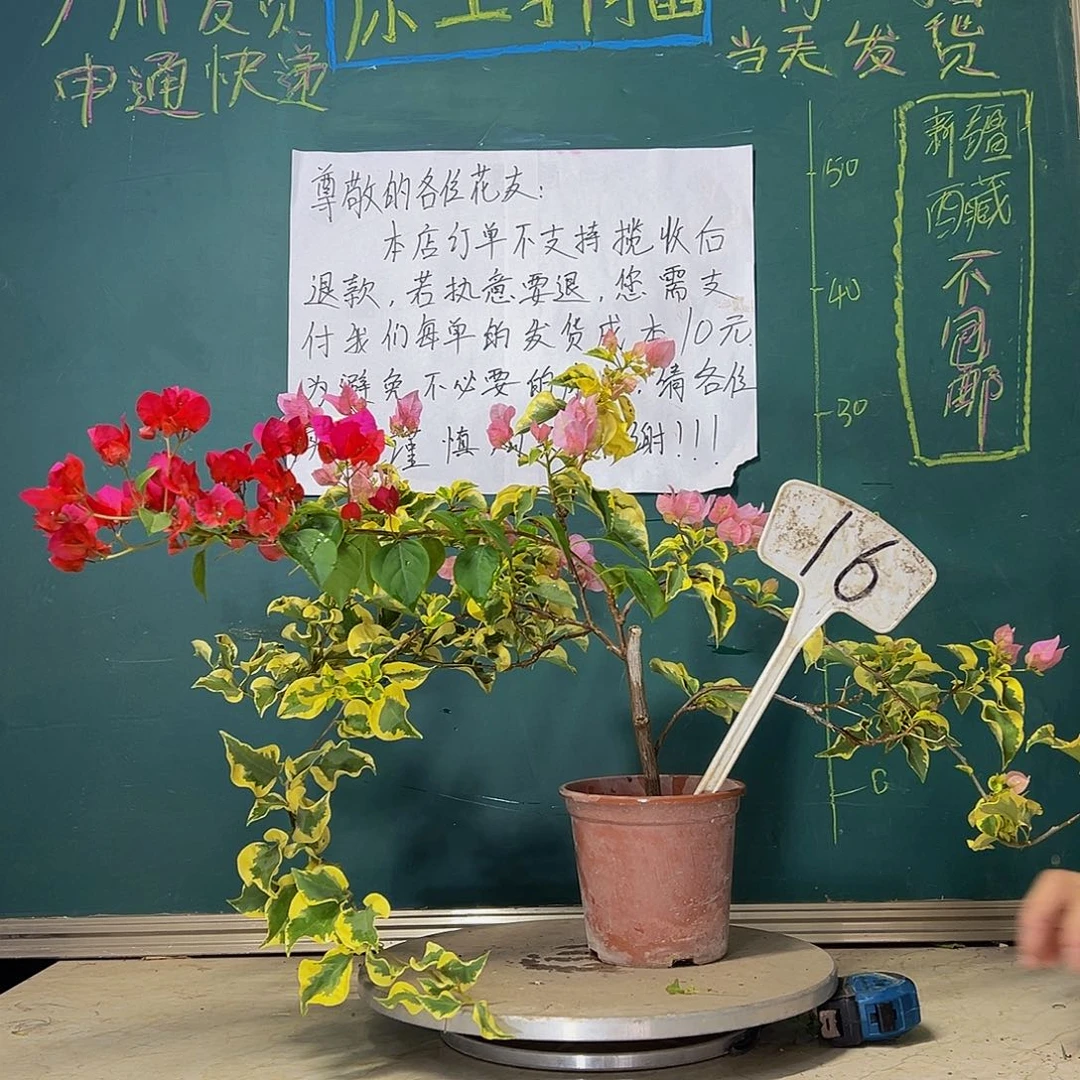 广州发货
申通快递
当天发货
尊敬的各位花友:
本店订单不支持揽收后
退款,若执意要退,您需支
付我们每单的发货成本10元
为避免不必要的,请各位
谨慎谢!!!
50
40
30
0
新疆
西藏
不包邮
16